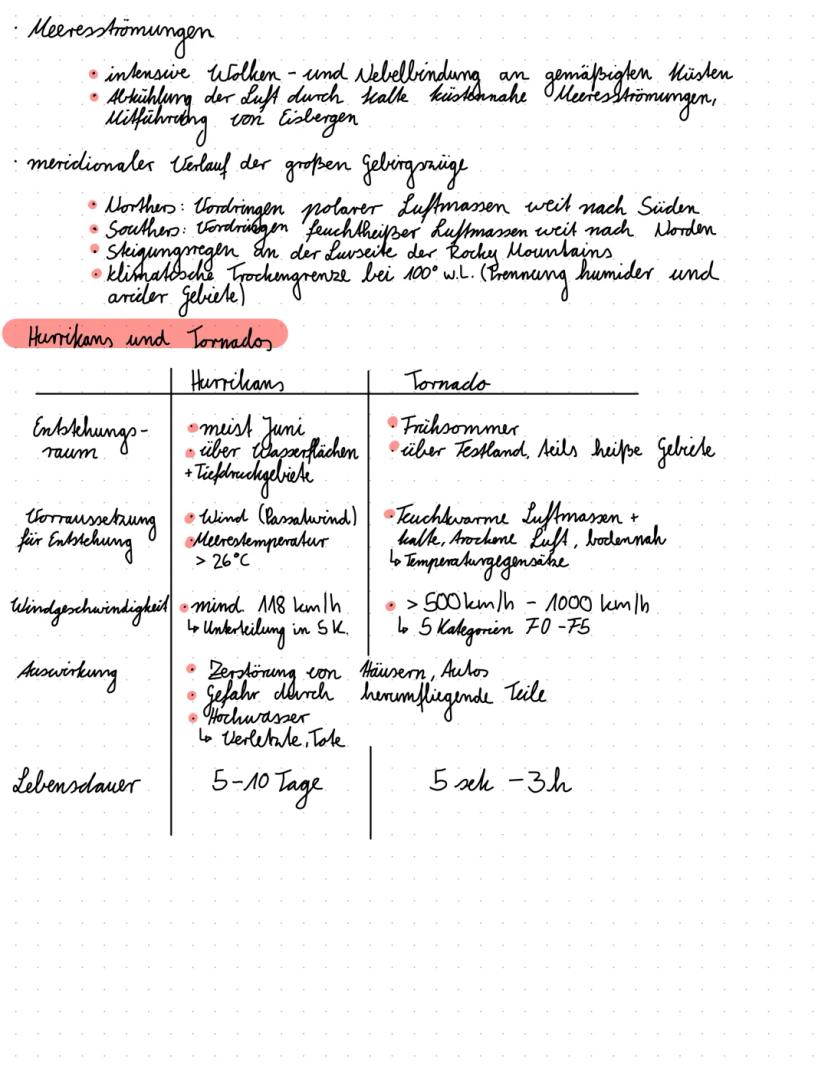 · Meeresströmungen
• intensive Wolken- und Nebelbindung an gemäßigten Küsten
• Abkühlung der Luft durch kalte küstennahe Meeresströmungen,
Mitführung von Eisbergen
· meridionaler Verlauf der großen Gebirgszüge
• Northers: Vordringen polarer Luftmassen weit nach Süden
• Southers: Vordringen feuchtheißer Luftmassen weit nach Norden
• Steigungsregen an der Luvseite der Rocky Mountains
• klimatische Trockengrenze bei 100° w.L. (Trennung humider und
arider Gebiete)
Hurrikans und Tornados
Hurrikans Tornado
Entstehungs- • meist Juni • Frühsommer
raum • über Wasserflächen • über Festland, teils heiße Gebiete
+ Tiefdruckgebiete
Vorraussetzung • Wind (Passatwind) • Feuchtwarme Luftmassen +
für Entstehung • Meerestemperatur kalte, trockene Luft, bodennah
> 26°C ↳ Temperaturgegensätze
Windgeschwindigkeit • mind. 118 km/h • > 500 km/h - 1000 km/h
↳ Unterteilung in 5 K. ↳ 5 Kategorien F0-F5
Auswirkung • Zerstörung von Häusern, Autos
• Gefahr durch herumfliegende Teile
• Hochwasser
↳ Verletzte, Tote
Lebensdauer 5-10 Tage 5 sek - 3h